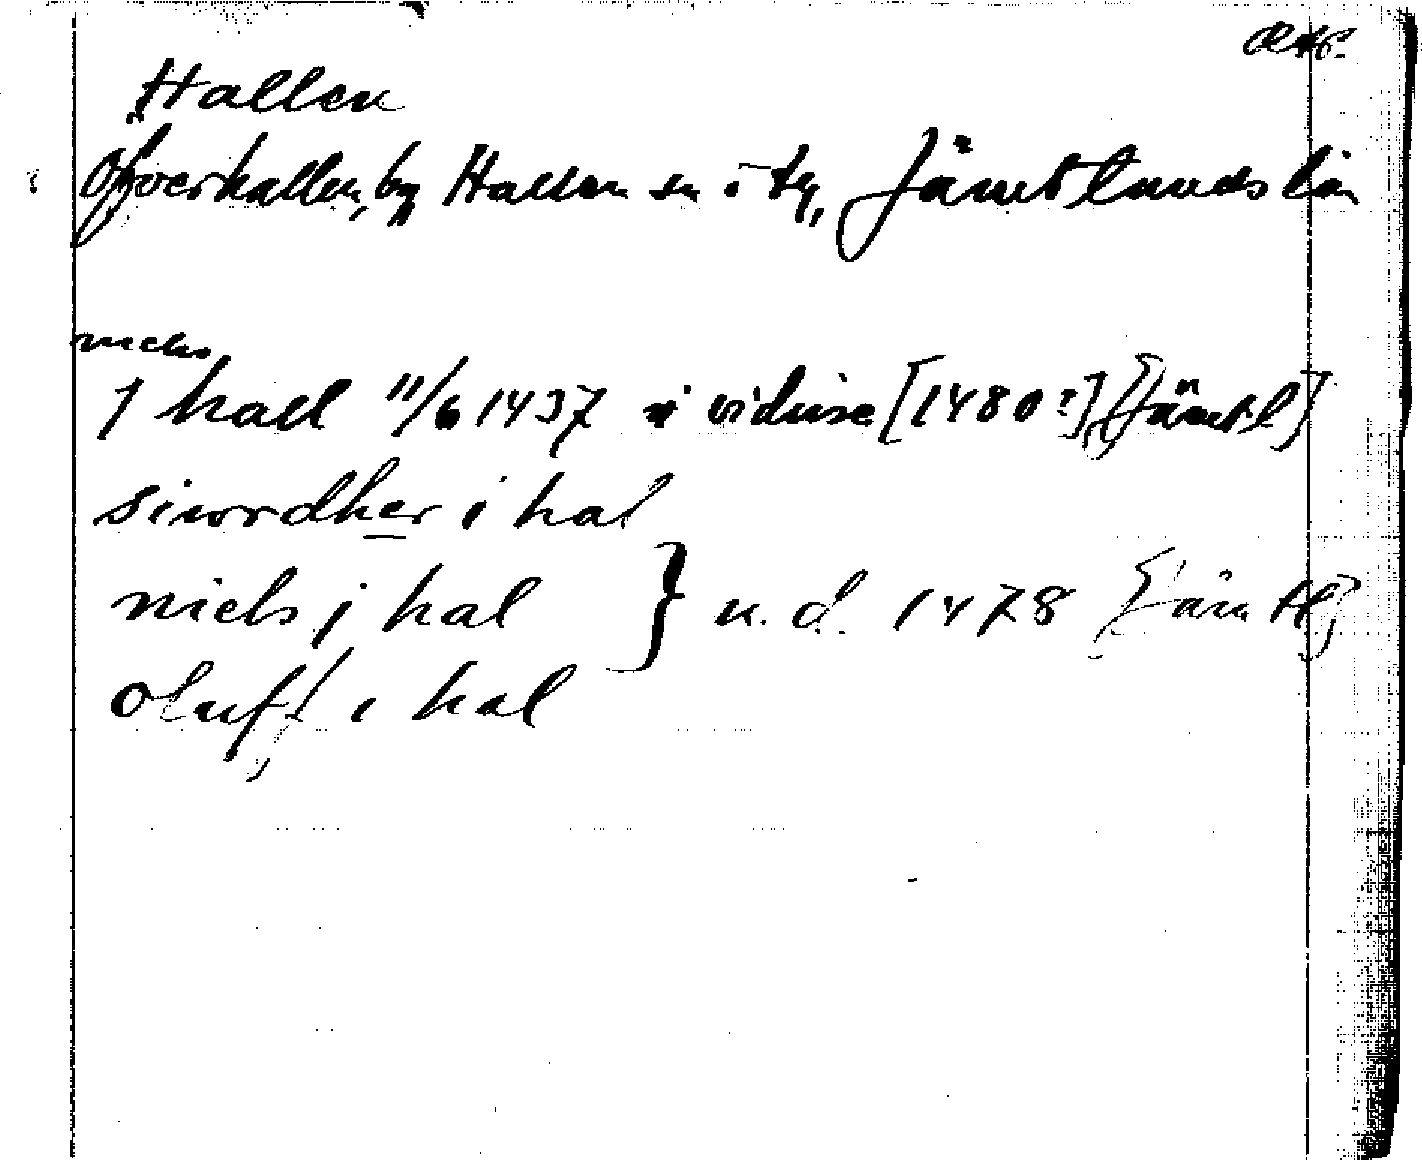 Hallen
Öfverhallen, by Hallen sn i tg, Jämtlands län
niels
J hall 11/6 1437 i vidisse [1480?] [Jämtl]
siwrdher i hal
niels j hal } u. d. 1478 [Jämtl]
oluff i hal